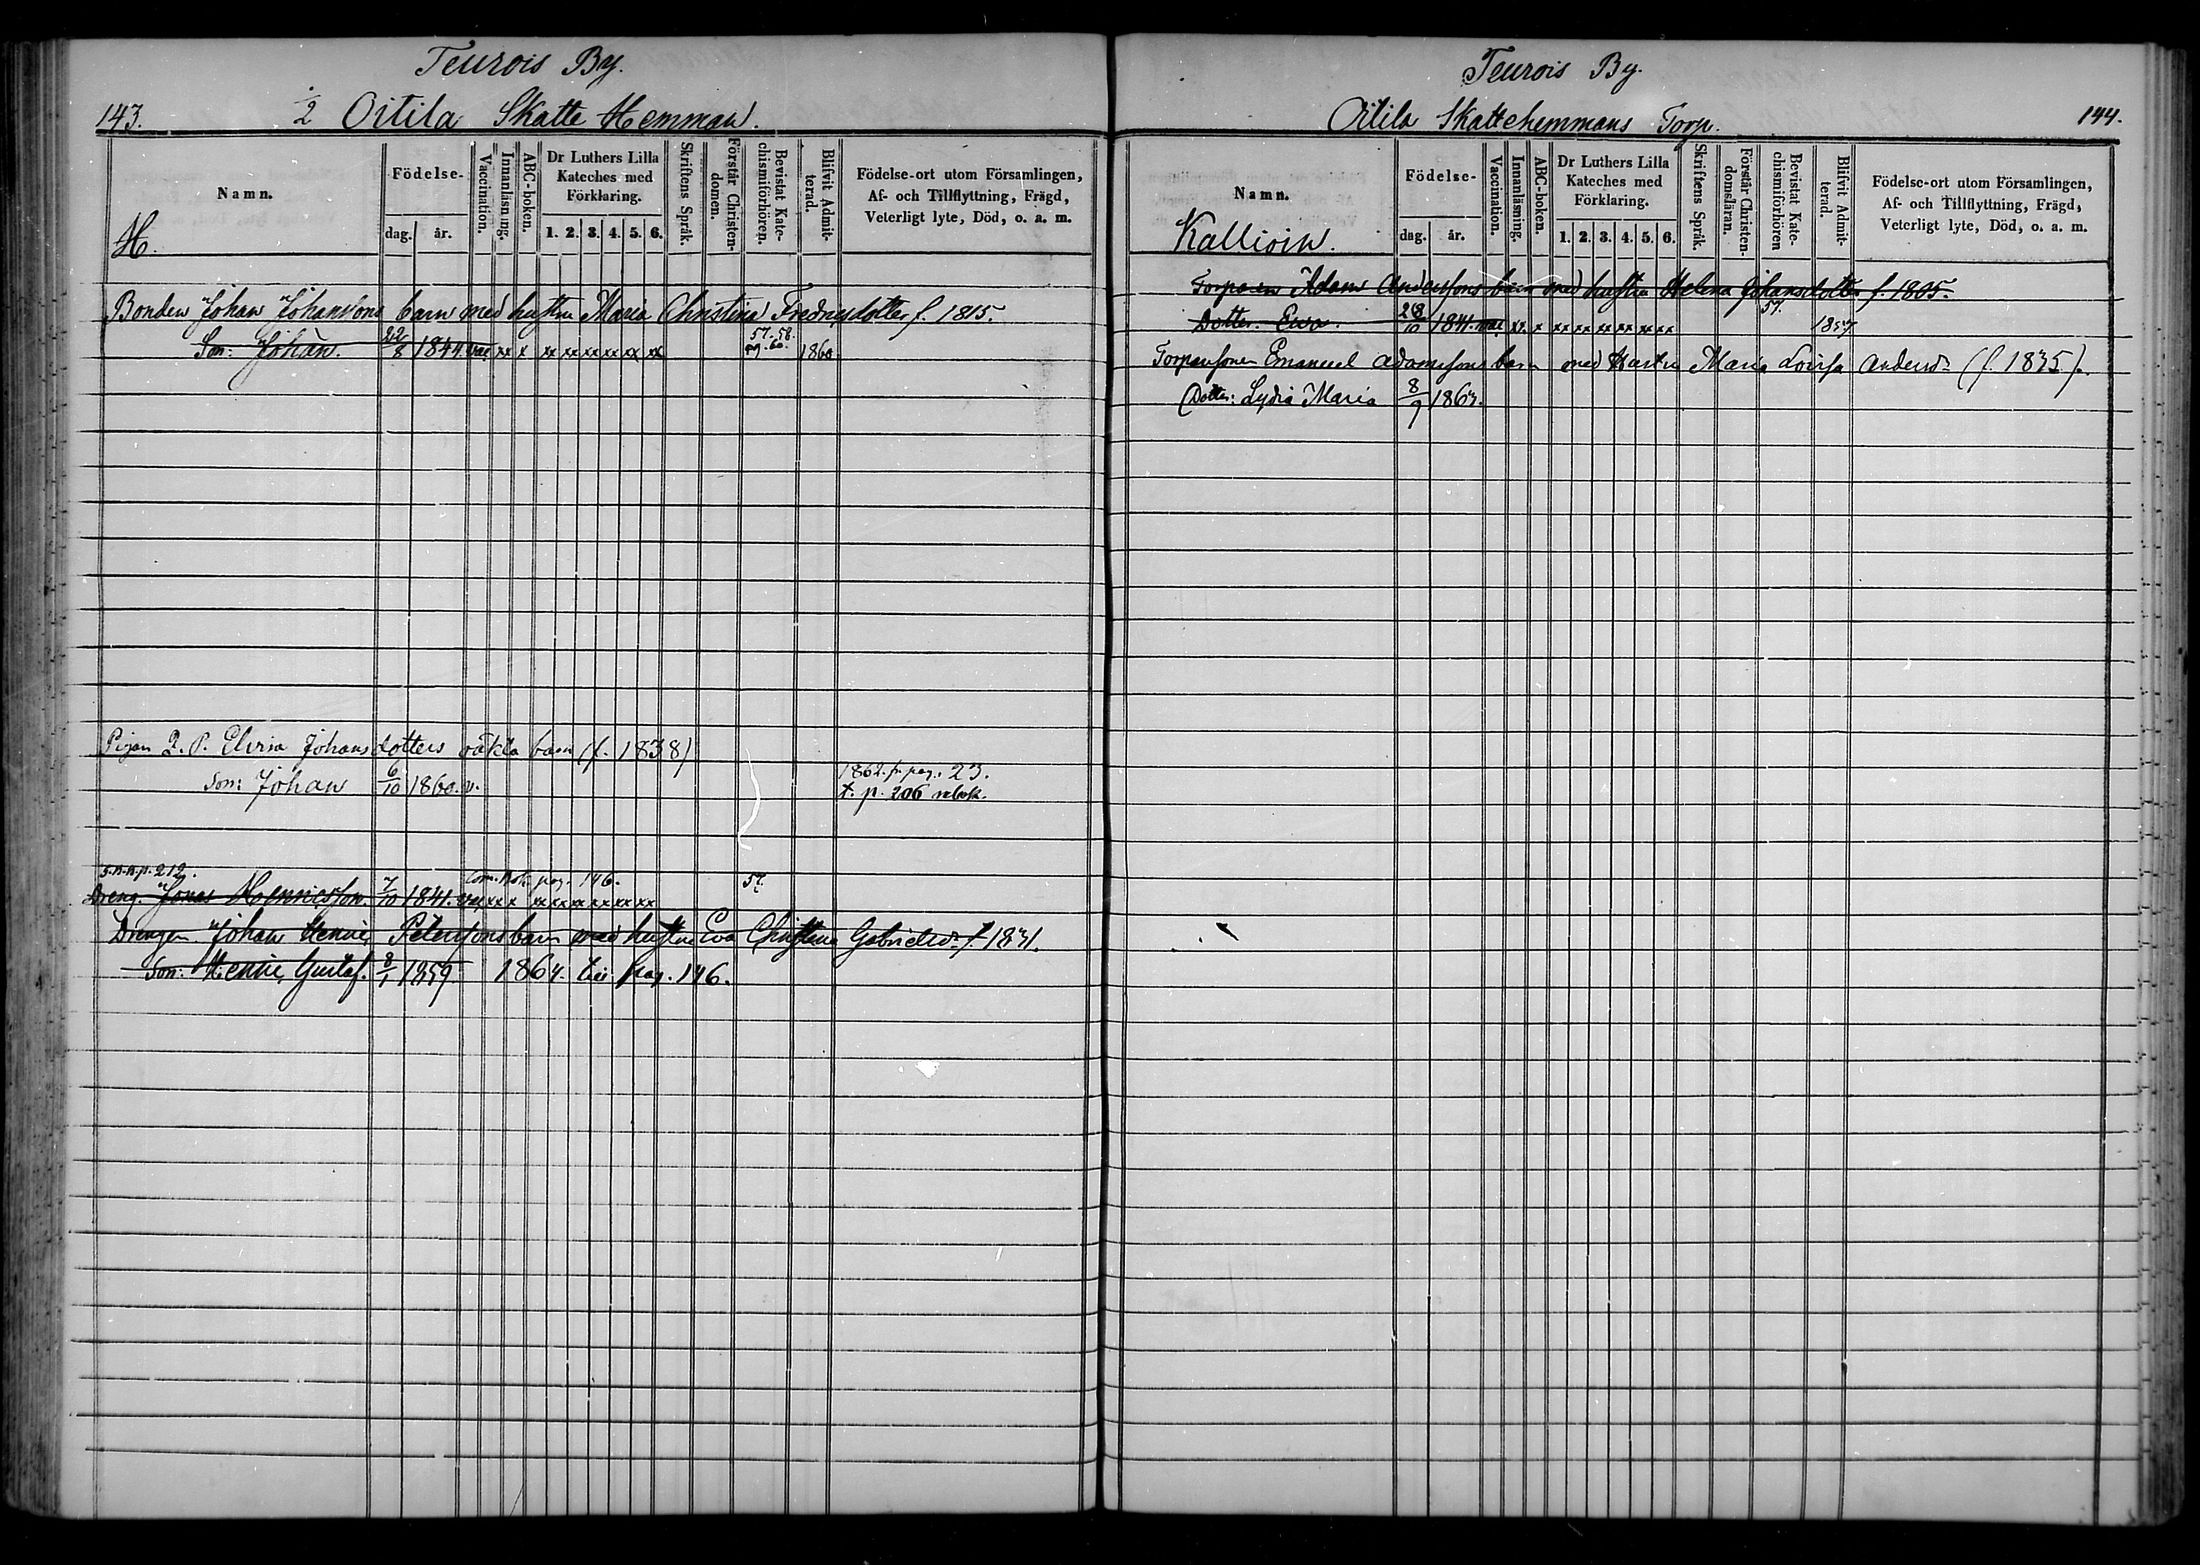 Teurois By.
143. ½ Oitila Skatte Hemman.
Namn. Födelse- Vaccination. Innanläsning. ABC-boken. Dr Luthers Lilla Kateches med Förklaring. Skriftens Språk. Förstår Christendomen. Bevistat Katechismiförhören. Blifvit Admitterad. Födelse-ort utom Församlingen, Af- och Tillflyttning, Frägd, Veterligt lyte, Död, o. a. m.
dag. år. 1. 2. 3. 4. 5. 6.
H.
Bonden Johan Johanssons barn med hustru Maria Christina Fredriksdotter f. 1815.
57. 58.
Son: Johan. 22/8 1844. vac xx x xx xx xx xx xx xx 59. 60. 1860.
Pigan Elvira Johansdotters oäkta barn (f. 1838)
1862. fr. pag. 23.
Son: Johan 6/10 1860. v. t. p. 206 nebok.
p. 212. Com. Bok pag. 146. 57.
Dreng. Jonas Henricsson. 7/10 1841. vac xx x xx xx xx xx xx xx
Drengen Johan Henric Petersons barn med hustru Eva Christina Gabrielsd. f. 1831.
Son: Henric Gustaf. 8/1 1859. 1864. till pag. 146.
Teurois By.
Oitila Skattehemmans Torp. 144.
Namn. Födelse- Vaccination. Innanläsning. ABC-boken. Dr Luthers Lilla Kateches med Förklaring. Skriftens Språk. Förstår Christendomsläran. Bevistat Katechismiförhören Blifvit Admitterad. Födelse-ort utom Församlingen, Af- och Tillflyttning, Frägd, Veterligt lyte, Död, o. a. m.
dag. år. 1. 2. 3. 4. 5. 6.
Kallioin.
Torparen Adam Anderssons barn med hustru Helena Johansdotter f. 1805.
Dotter. Eva. 28/10 1841. vac xx. x xx xx xx xx xx xx 57. 1857
Torparesonen Emanuel Adamssons barn med Hustru Maria Lovisa Andersd. (f. 1835).
Dotter: Lydia Maria 8/9 1863.